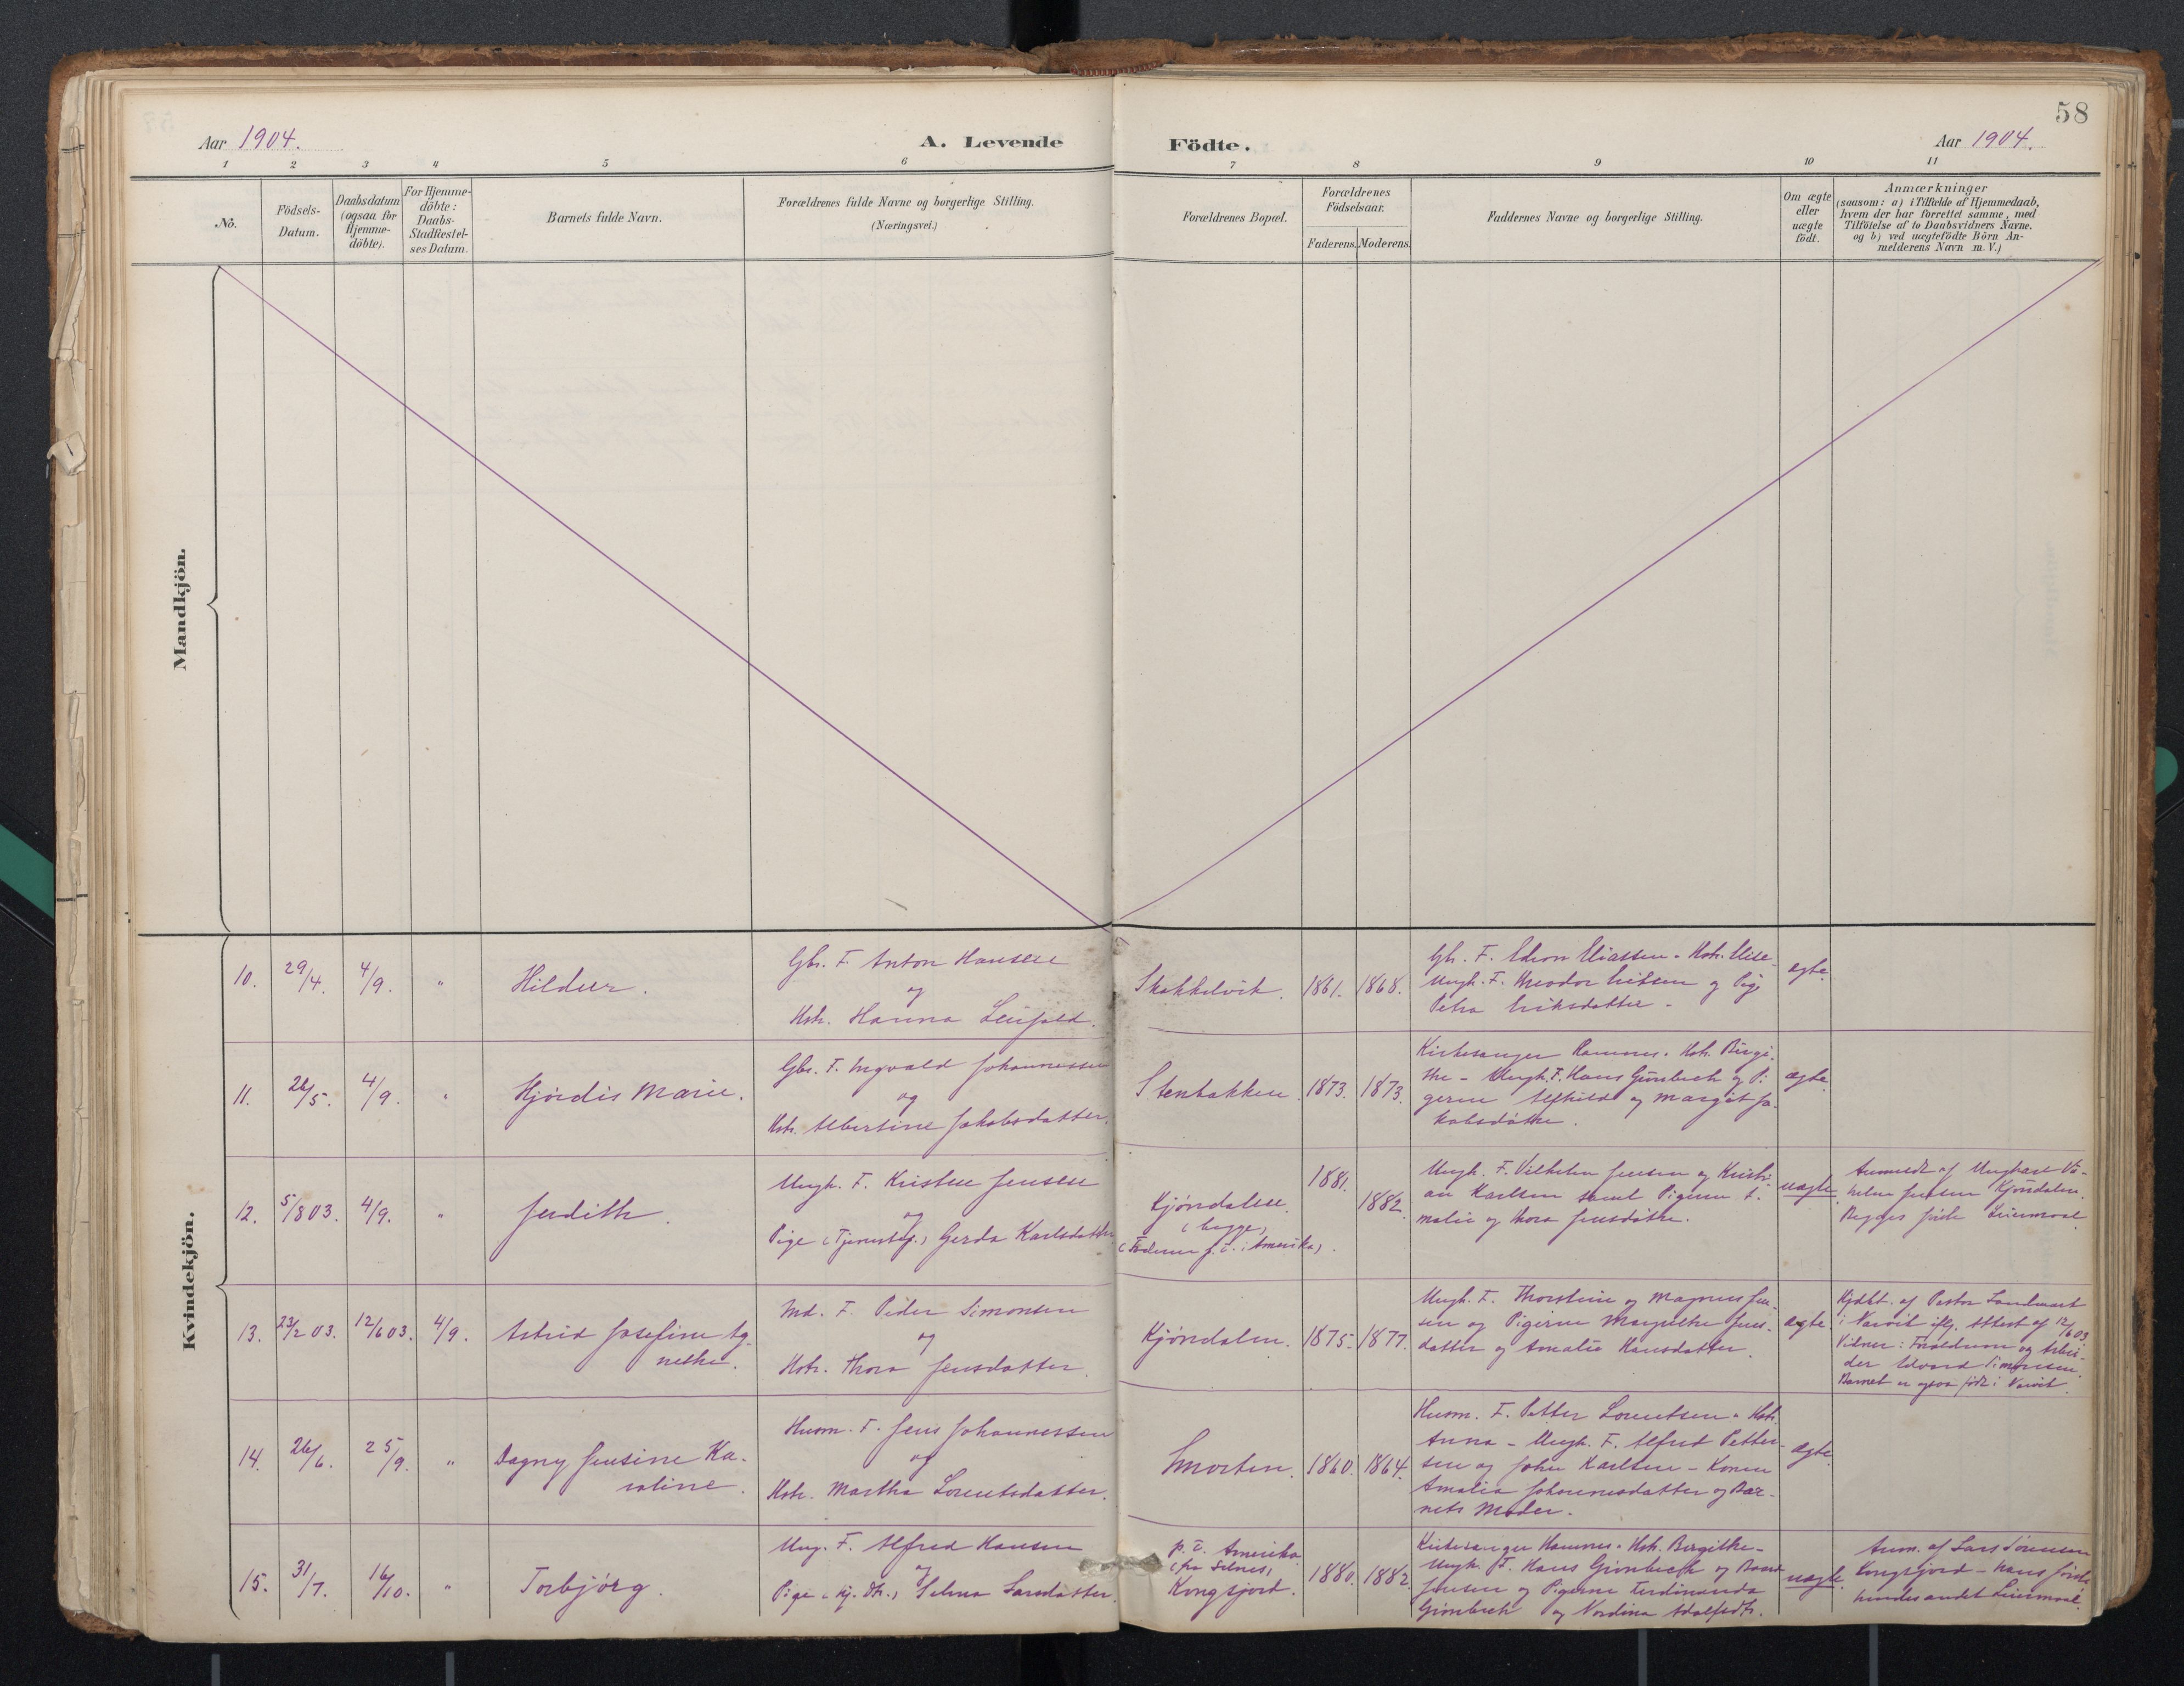 58
Aar 1904.
A. Levende
Födte.
Aar 1904.
1 2 3 4 5 6 7 8 9 10 11
No.
Födsels-
Datum.
Daabsdatum
(ogsaa for
Hjemme-
döbte).
For Hjemme-
döbte:
Daabs-
Stadfæstel-
ses Datum.
Barnets fulde Navn.
Forældrenes fulde Navne og borgerlige Stilling.
(Næringsvei.)
Forældrenes Bopæl.
Forældrenes
Födselsaar.
Faderens. Moderens.
Faddernes Navne og borgerlige Stilling.
Om ægte
eller
uægte
födt.
Anmærkninger
(saasom: a) i Tilfælde af Hjemmedaab,
hvem der har forrettet samme, med
Tilföielse af to Daabsvidners Navne.
og b) ved uægtefödte Börn An-
melderens Navn m. V.)
Mandkjön.
Kvindekjön.
10. 29/4. 4/9. "
Hildur.
Gbr. F. Anton Hansen
og
Hstr. Hanna
Skakkelvik. 1861. 1868.
Gbr. F. Eliassen - Hstr. Elise
Ungk. F. Theodor og Pig
Petra Eriksdatter -
ægte
11. 26/5. 4/9. "
Hjørdis Marie.
Gbr. F. Ingvald Johannessen
og
Hstr. Albertine Jakobsdatter.
Stenbakken 1873. 1873.
Kirkesanger Hamnes. Hstr. Birgi-
the - Ungk. F. Hans Grønbech og Pi-
gerne Alfhild og Margit Ja-
kobsdøtre.
ægte
12. 5/8 03. 4/9. "
Judith.
Ungk. F. Kristen Jensen
og
Pige (Tjenestep.) Gerda Karlsdatter
Kjøndalen
(begge)
(Faderen p. t. i Amerika).
1881.
1882.
Ungk. F. Vilhelm Jensen og Kristi-
an Karlsen samt Pigerne A-
malie og Thora Jensdøtre.
uægte
Anmeldt af Ungkarl Vil-
helm Jensen Kjøndalen.
Begges første Leiermaal.
13. 23/2 03. 12/6 03. 4/9.
Astrid Josefine Ag-
nethe.
Md. F. Peder Simonsen
og
Hstr. Thora Jensdatter.
Kjøndalen. 1875. 1877.
Ungk. F. Thorstein og Magnus Jen-
sen og Pigerne Margrethe Jens-
datter og Amalie Hansdatter.
ægte
Hjdbt. af Pastor Landmark
i Narvik iflg. Attest af 12/6 03
Vidner: Forældrene og Arbei-
der Edvard Simonsen.
Barnet er ogsaa født i Narvik.
14. 26/6. 25/9. "
Dagny Jensine Ka-
roline.
Husm. F. Jens Johannessen
og
Hstr. Martha Lorentsdatter.
Smorten. 1860. 1864.
Husm. F. Petter Lorentsen. Hstr.
Anna - Ungk. F. Alfred Petter-
sen og Johan Karlsen - Konen
Amalia Johannesdatter og Bar-
nets Moder.
ægte
15. 31/7. 16/10. "
Torbjørg.
Ung. F. Alfred Hansen
og
Pige (Hj. Dtr.) Selma Larsdatter.
p. t. Amerika
(fra Selnes)
Kongsjord. 1880. 1882.
Kirkesanger Hamnes. Hstr. Birgithe -
Ungk. F. Hans Grønbech og
Jensen og Pigerne Ferdinanda
Grønbech og Nordina Adolfsdtr.
uægte
Anm. af Lars Sørensen
Kongsjord - hans første
hendes andet Leiermaal.